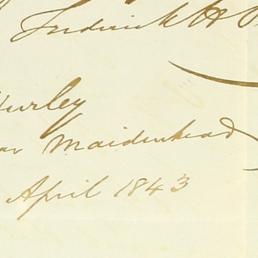 Frederick H
Hurley
near Maidenhead
April 1843